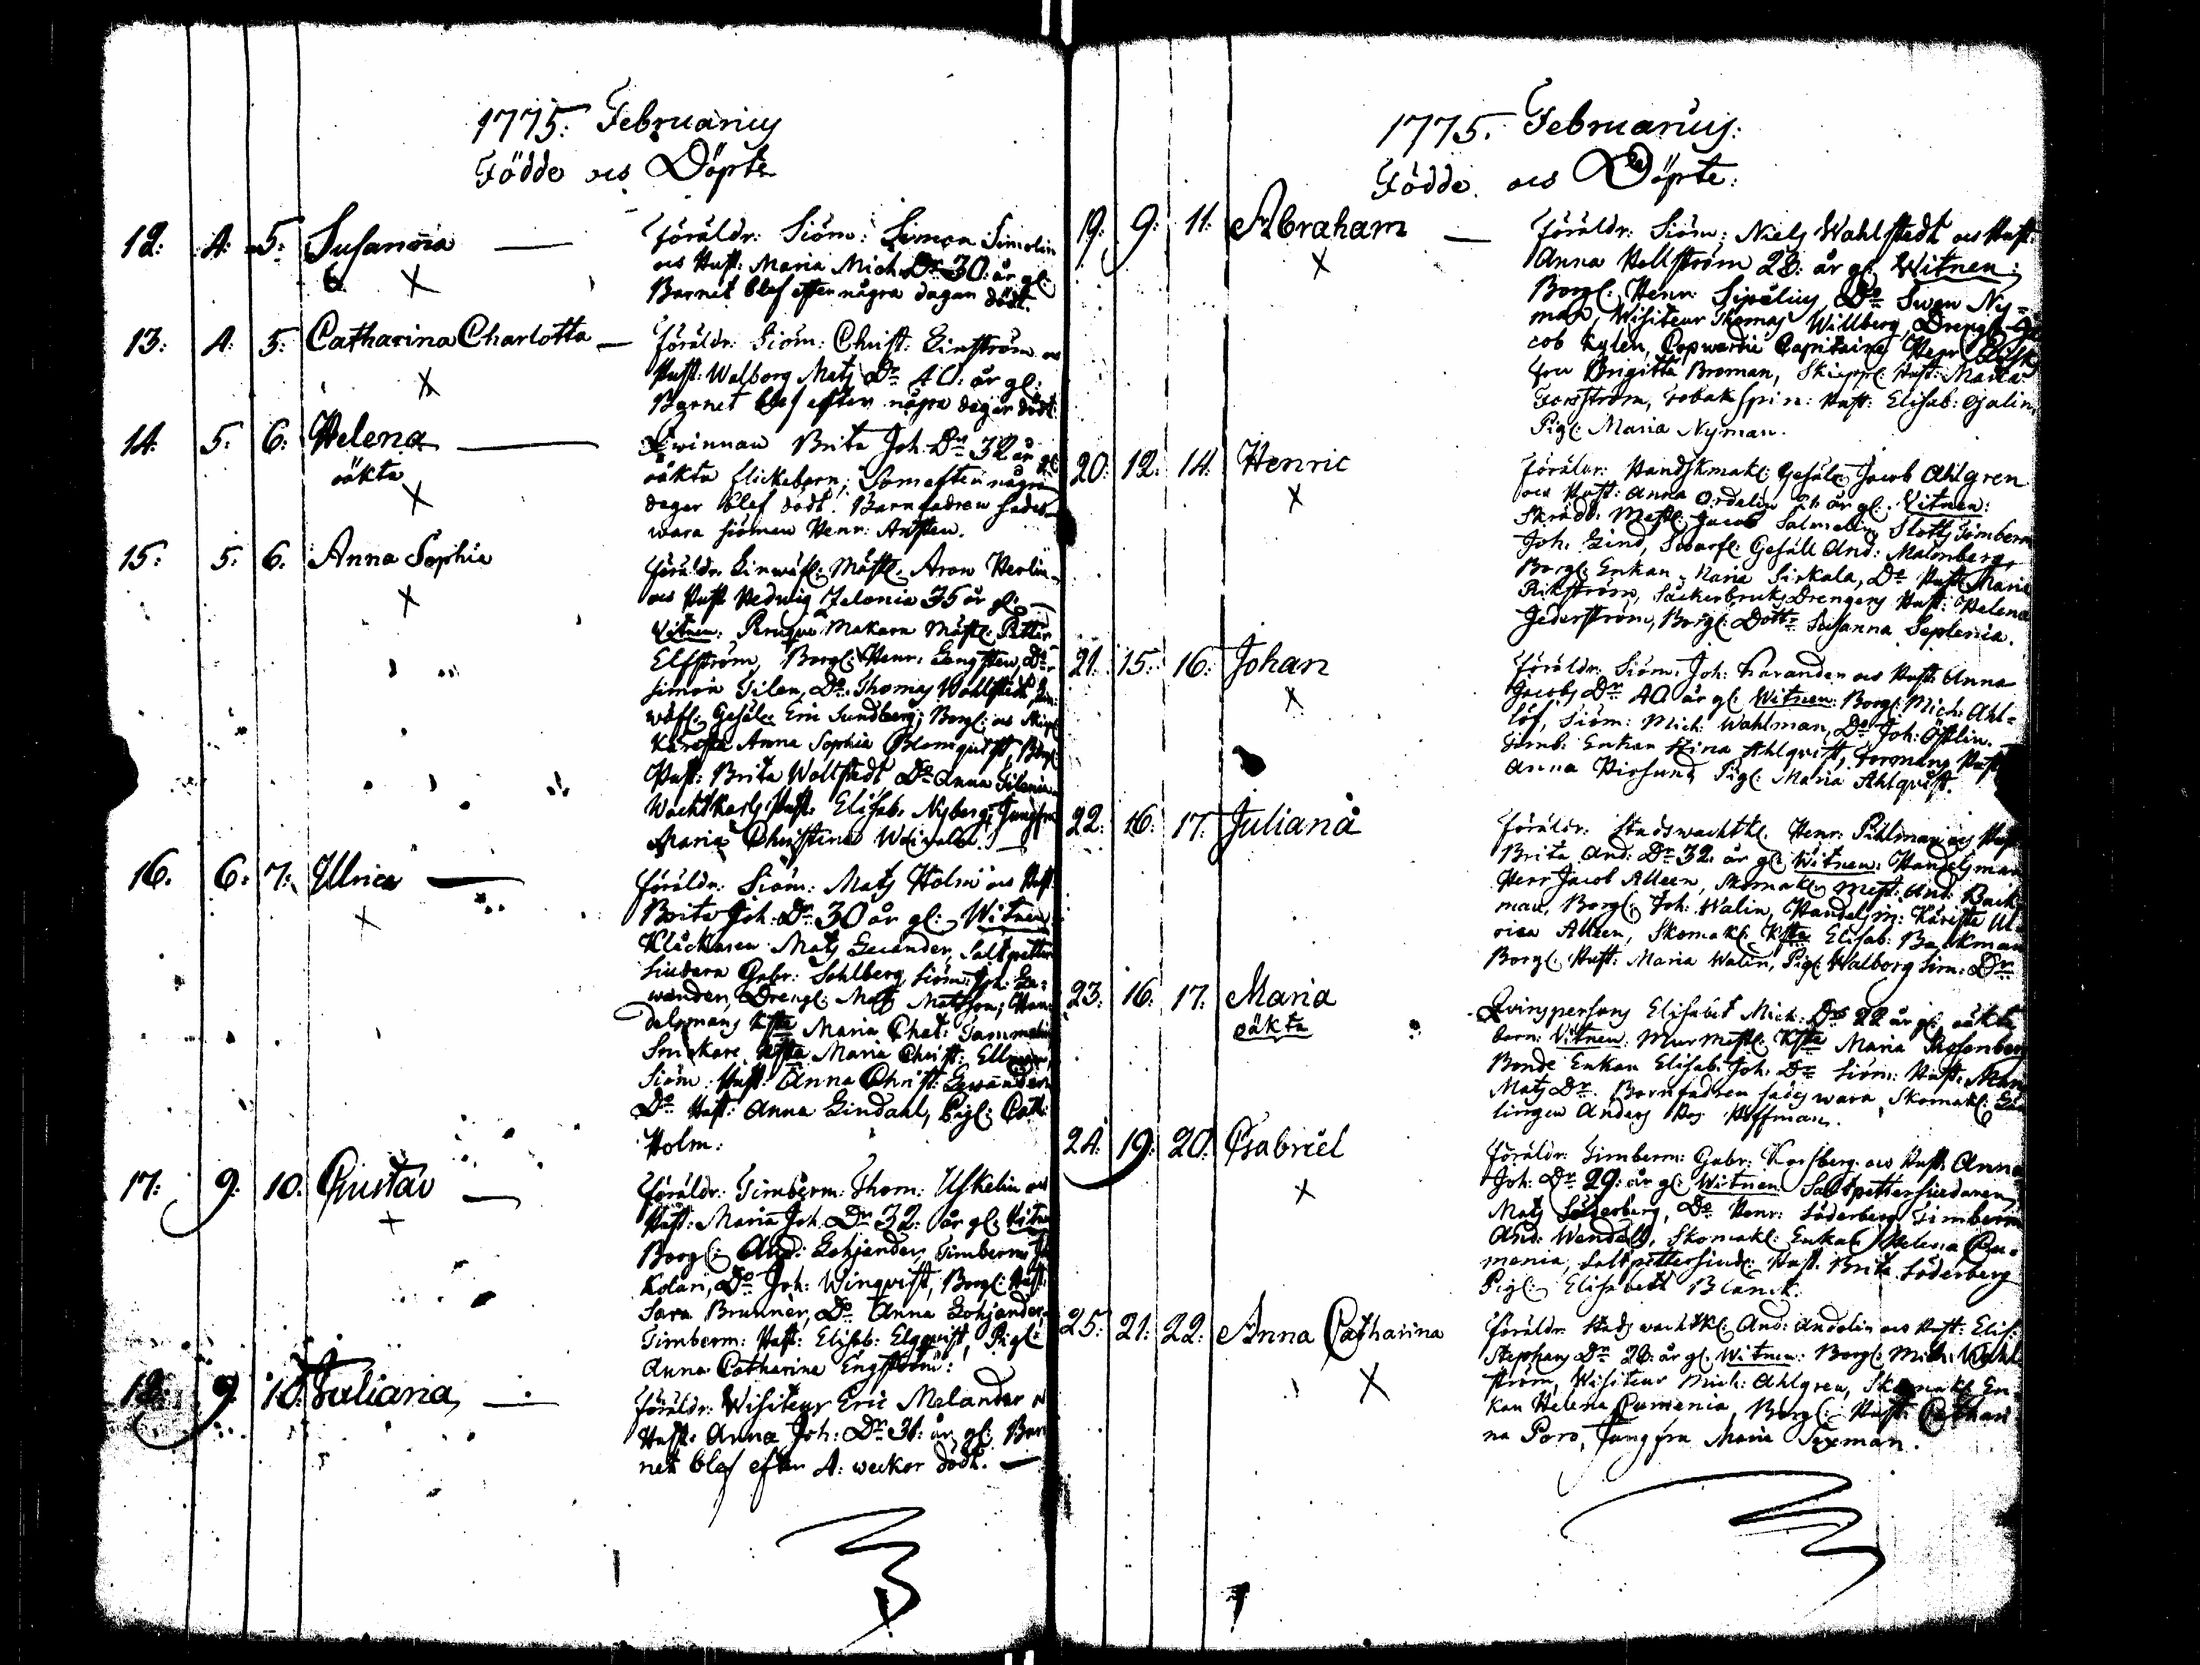 1775. Februarius
Födde och Döpte
12: 4: 5: Susanna — Föräldr: Siöm: Simon Simolin
och Hust: Maria Mich: Dr 30: år gl:
Barnet blef efter några dagar dödt.
13: 4: 5: Catharina Charlotta — Föräldr: Siöm: Christ: Linström och
Hust: Walborg Mats Dr 40: år gl:
Barnet blef efter några dagar dödt.
14: 5: 6: Helena — Qwinnan Brita Joh: Dr 32 år gl
oäkta oäkta flickebarn, som efter några
dagar blef dödt. Barnfadren sades
wara siöman Henr:
15: 5: 6: Anna Sophia Föräldr: Linwäf: Mäst: Aron Herlin
och Hust: Hedwig Zelonia 35 år gl:
Witnen: Peruque Makarn Mäst: Petter
Elfström, Borg: Henr: Lengsten, Do
Simon Tilen, Do Thomas Wahlstedt Lin:
wäf: Gesäll Eric Sundberg, Borg: och
Käresta Anna Sophia Blomquist, Borg:
Hust: Brita Wallstedt Do Anna Tilenia
Wachtkarls Hust: Elisab: Nyberg, Jungfru
Maria Christina
16. 6: 7: Ulrica — Föräldr: Siöm: Mats Holm och Hust:
Brita Joh: Dr 30 år gl: Witnen
Klåckaren Mats Leuander, Saltpetter
siudern Gabr: Sohlberg, Siöm: Joh: Le-
wander, Drengl: Mats Matsson, Han-
delsmans Ksta Maria Chat:
Maria Christ:
Siöm: Hust: Anna Christ: Lewander
Do Hust: Anna Lindahl, Pigl: Cath:
Holm:
17: 9: 10: Gustav — Föräldr: Timberm: Thom: Uskelin och
Hust: Maria Joh: Dr 32: år gl: Witn
Borg: And: Lohjander, Timberm:
Kolari, Do Joh: Winqvist, Borg: Hust:
Sara Brunner, Do Anna Lohjander,
Timberm: Hust: Elisab: Elgqvist, Pigl:
Anna Catharina Engström:
18: 9: 10: Juliana — Föräldr: Wisiteur Eric Melander o
Hust: Anna Joh: Dr 31: år gl: Bar
net blef efter 4: weckor dödt. —
1775. Februarius:
Födde och Döpte:
19: 9: 11: Abraham — Föräldr: Siöm: Niels Wahlstedt och Hust:
Anna Hellström 28: år gl: Witnen:
Borg: Henr: Sipelius, Do Swen Ny-
man, Wisiteur Thomas Willberg, Drengl: Ja
cob Kylen, Copwardie Capitains Herr
fru Brigitta Broman, Skiepp: Hust: Maria
Forsström, Tobakspin: Hust: Elisab: Ojalin
Pigl: Maria Nyman.
20: 12: 14: Henric Föräldr: Handskmak: Gesäll: Jacob Ahlgren
och Hust: Anna Ordelin 21 år gl: Witnen:
Skrädd: Mest: Jacob Salmelin, Slotts Timberm
Joh: Lind, Swarf: Gesäll And: Malmberg,
Borg: Enkan Maria Sirkala, Do Hust: Maria
Rikström, Såckerbruks Drengens Hust: Helena
Jederström, Borg: Dottr Susanna Seplenia.
21: 15: 16: Johan Föräldr: Siöm: Joh: Harander och Hust: Anna
Jacobs Dr 40 år gl: Witnen: Borg: Mich: Ahl-
löf, Siöm: Mich: Wahlman, Do Joh: Östlin.
Timb: Enkan Stina Ahlqvist, Formans Hust
Anna Hirslund Pigl: Maria Ahlqvist.
22: 16: 17: Juliana Föräldr: Stads wachtk: Henr: Pihlman och Hust
Brita And: Dr 32: år gl: Witnen: Handelsman
Herr Jacob Alleen, Skomak: Mest: And: Back-
man, Borg: Joh: Walin, Handelsm: Käresta Ul-
rica Alleen, Skomak: Ksta Elisab: Backman
Borg: Hust: Maria Walin, Pigl: Walborg Sim: Dr
23: 16: 17: Maria Qvinspersons Elisabet Mich: Dr 22 år gl: oäkta
oäkta barn: Witnen: Murmest: Ksta Maria Rosenberg
Bonde Enkan Elisab: Joh: Dr Siöm: Hust: Mar
Mats Dr. Barnfadren sades wara Skomak: Lär
lingen Anders Hoffman.
24: 19: 20: Gabriel Föräldr: Timberm: Gabr: Korsberg och Hust: Anna
Joh: Dr 29: år gl: Witnen Saltpettersiudaren
Mats Söderberg, Do Henr: Söderberg Timberm
And: Wendell, Skomak: Enkan Helena Pu-
menia, Saltpettersiud: Hust: Brita Söderberg
Pigl: Elisabeth Blanck.
25: 21: 22: Anna Catharina Föräldr: Stads wachtk: And: Andelin och Hust: Elis:
Stephans Dr 28: år gl: Witnen: Borg: Mich: Wahl
ström, Wisiteur Mich: Ahlgren, Skomak: En-
kan Helena Pumenia, Borg: Hust: Cathari
na Poro, Jungfru Maria Taxman.